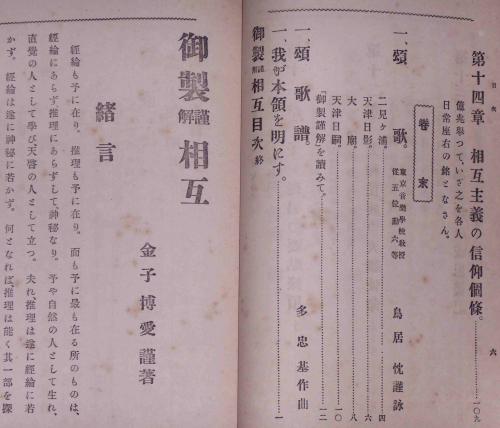 目次
六
第十四章 相互主義の信仰個條。一〇九
億兆擧つて、いざ之を各人
日常座右の銘となさん。
卷末
一、頌歌。東京音樂學校敎授
從五位勳六等
鳥居忱謹詠
二見ヶ浦。四
天津日影。六
大廟。八
天津日嗣。一〇
「御製謹解」を讀みて。一二
一、頌歌譜。多忠基作曲
一、我が本領を明にす。一
御製謹解相互目次終
御製謹解相互
金子博愛謹著
緒言
經綸も予に在り。推理も予に在り。而も予に最も在る所のものは、
經綸にあらず、推理にあらずして、神祕なり。予や自然の人として生れ、
直覺の人として學び、天啓の人として立つ。夫れ、推理は遂に經綸に若
かず。經綸は遂に神祕に若かず。何となれば、推理は能く其一部を探